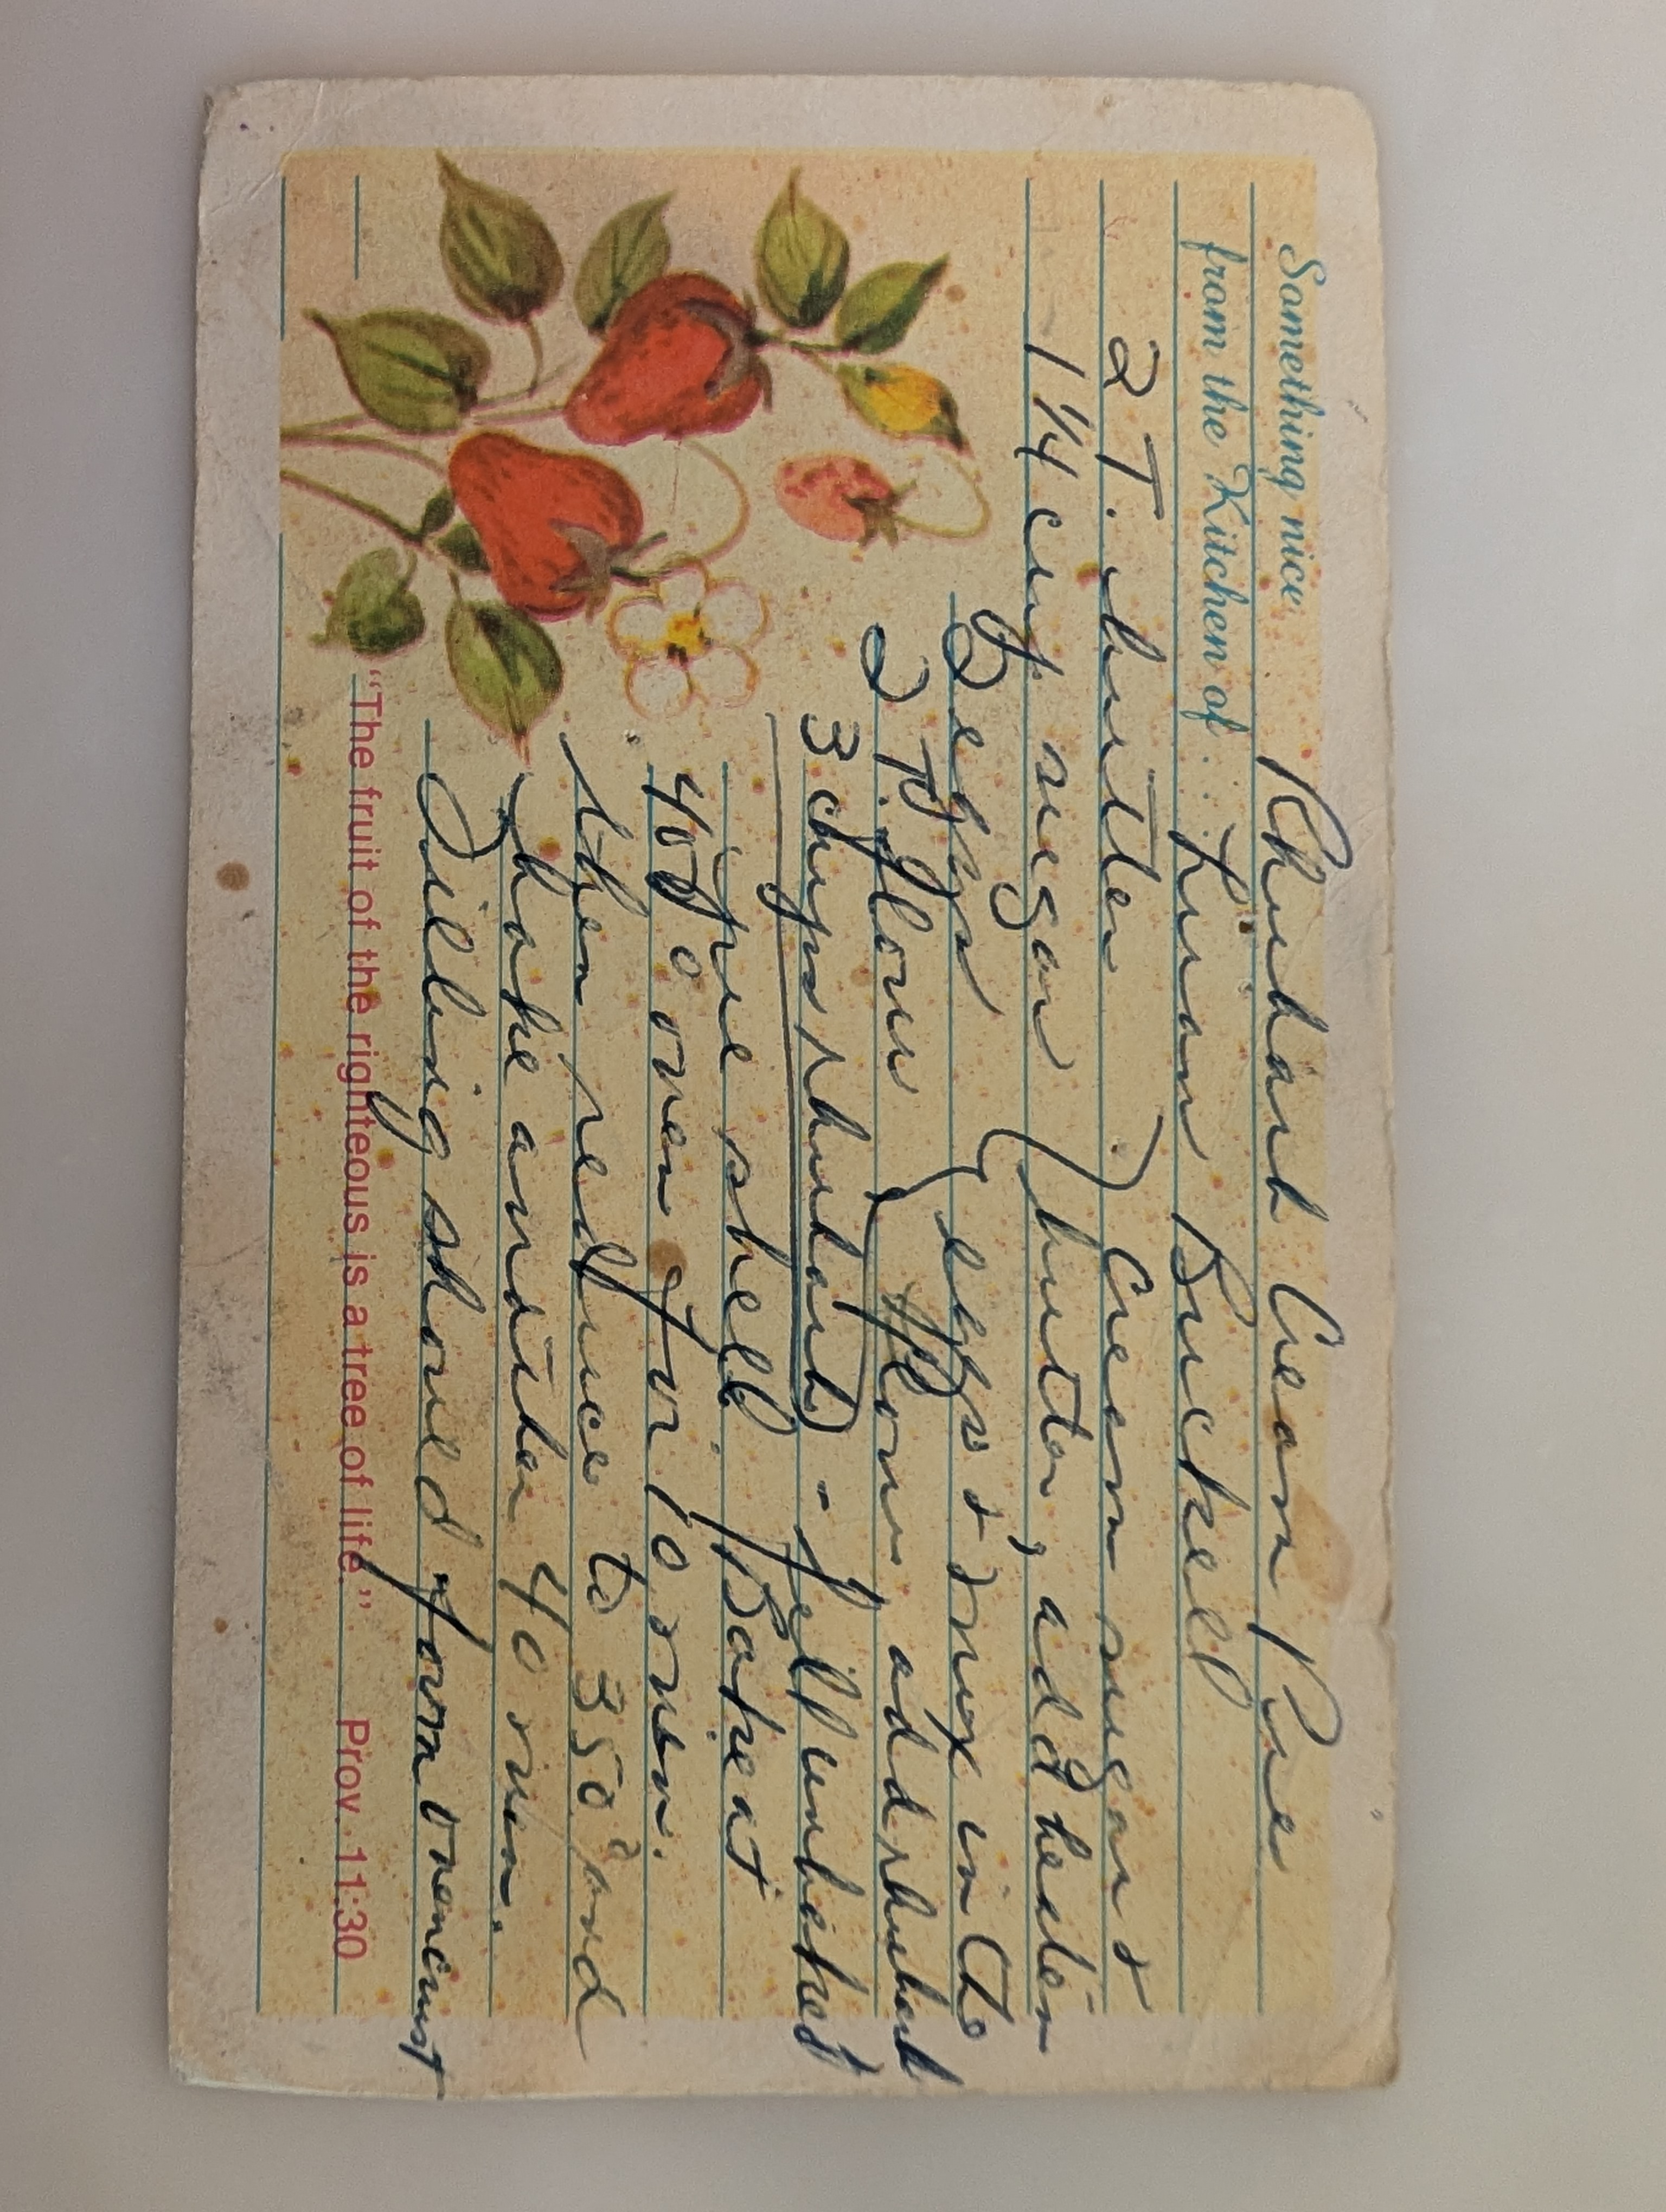 Something nice Rhubarb Cream Pie
from the Kitchen of: Luan Buckell
2 T. butter ) Cream sugar &
1 1/4 cup sugar ) butter, add beaten
2 eggs ( eggs & mix in the
2 T. flour ) flour, add rhubarb
3 c chups rhubarb) - fill unbaked
pie shell. Bake at
400° oven for 10 min.
then reduce to 350° and
bake another 40 min.
Filling should form own crust
"The fruit of the righteous is a tree of life." Prov. 11:30